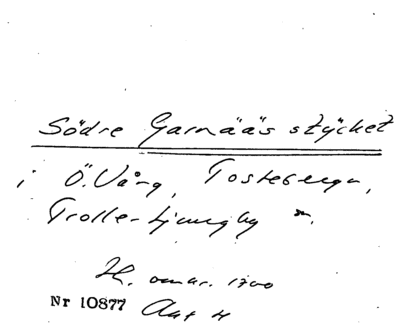 Södre Garnääs stycket
i Ö. Vång, Tosteberga,
Trolle-Ljungby sn.
H. omar. 1700
Nr 10877